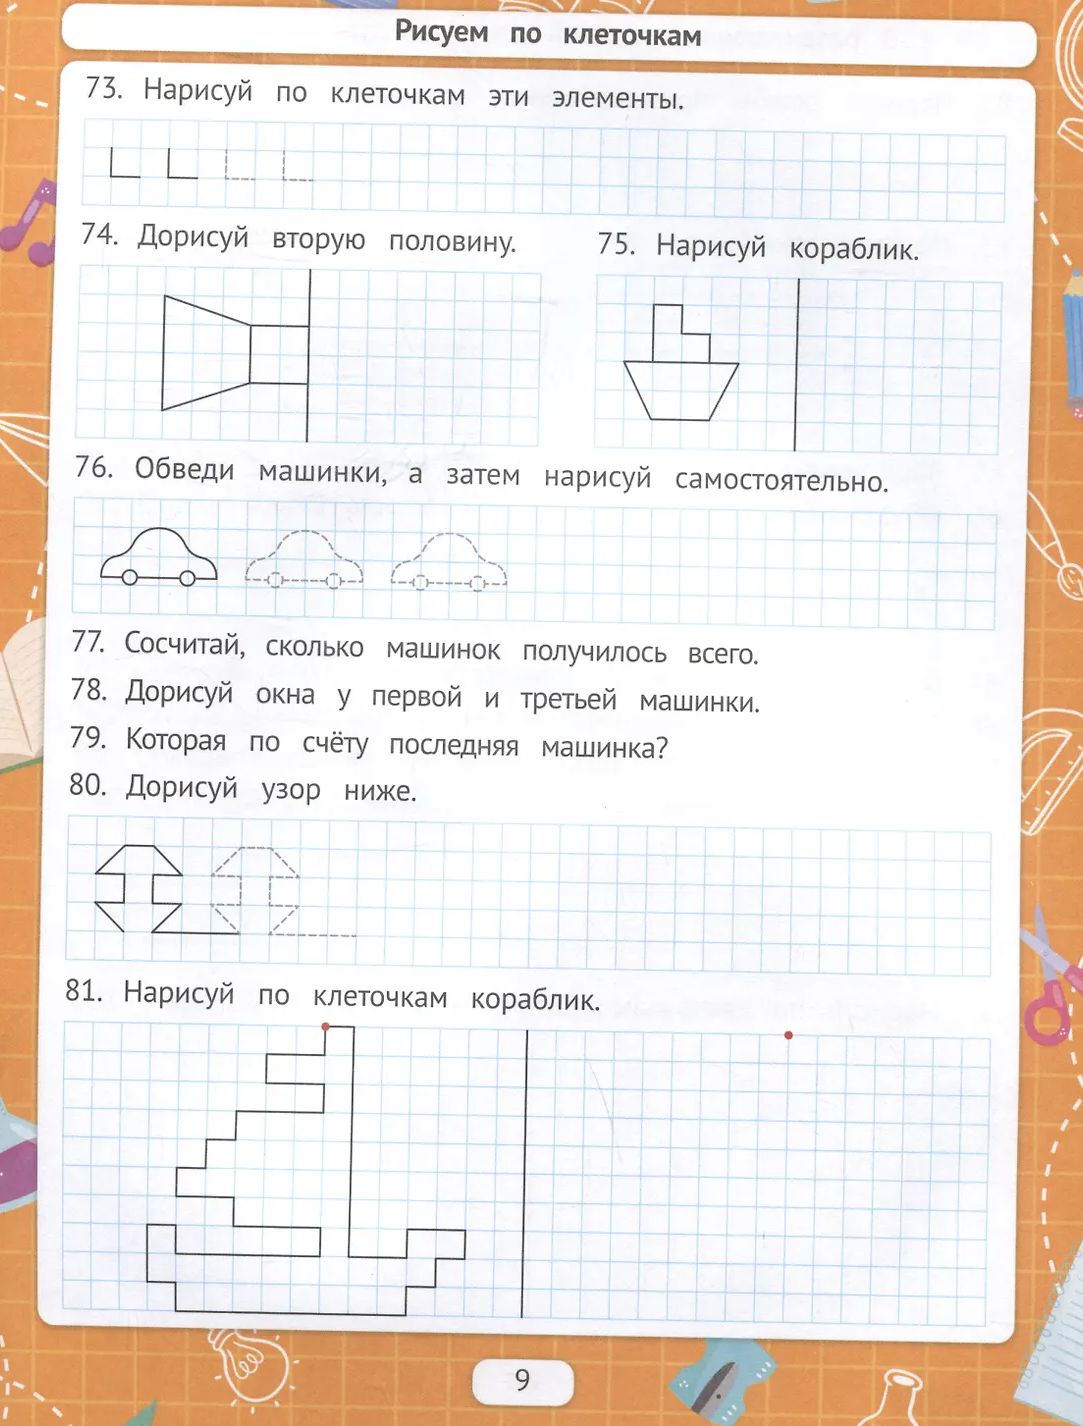 Рисуем по клеточкам
73. Нарисуй по клеточкам эти элементы.
74. Дорисуй вторую половину.
75. Нарисуй кораблик.
76. Обведи машинки, а затем нарисуй самостоятельно.
77. Сосчитай, сколько машинок получилось всего.
78. Дорисуй окна у первой и третьей машинки.
79. Которая по счёту последняя машинка?
80. Дорисуй узор ниже.
81. Нарисуй по клеточкам кораблик.
9